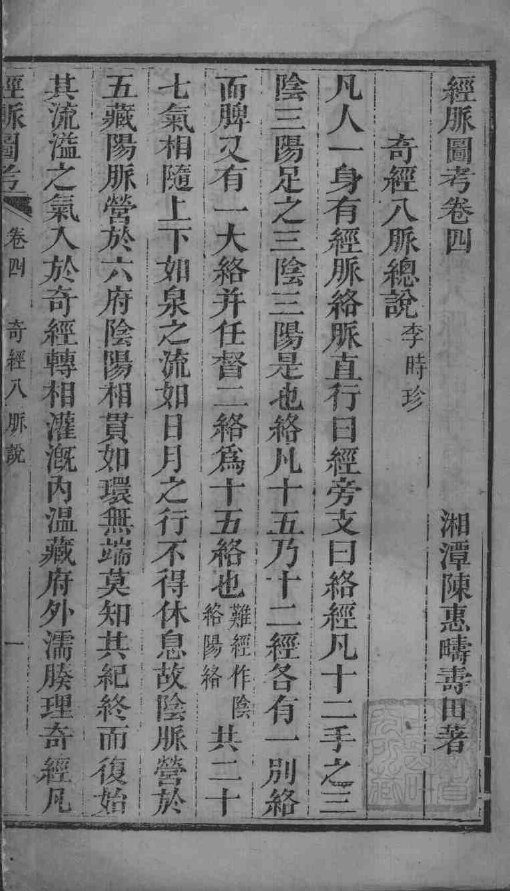 經脈圖考卷四
湘潭陳惠疇壽田著
奇經八脈總說李時珍
凡人一身有經脈絡脈直行曰經旁支曰絡經凡十二手之三
陰三陽足之三陰三陽是也絡凡十五乃十二經各有一別絡
而脾又有一大絡并任督二絡爲十五絡也難經作陰絡陽絡共二十
七氣相隨上下如泉之流如日月之行不得休息故陰脈營於
五藏陽脈營於六府陰陽相貫如環無端莫知其紀終而復始
其流溢之氣入於奇經轉相灌溉內温藏府外濡腠理奇經凡
經脈圖考
卷四
奇經八脈說
一